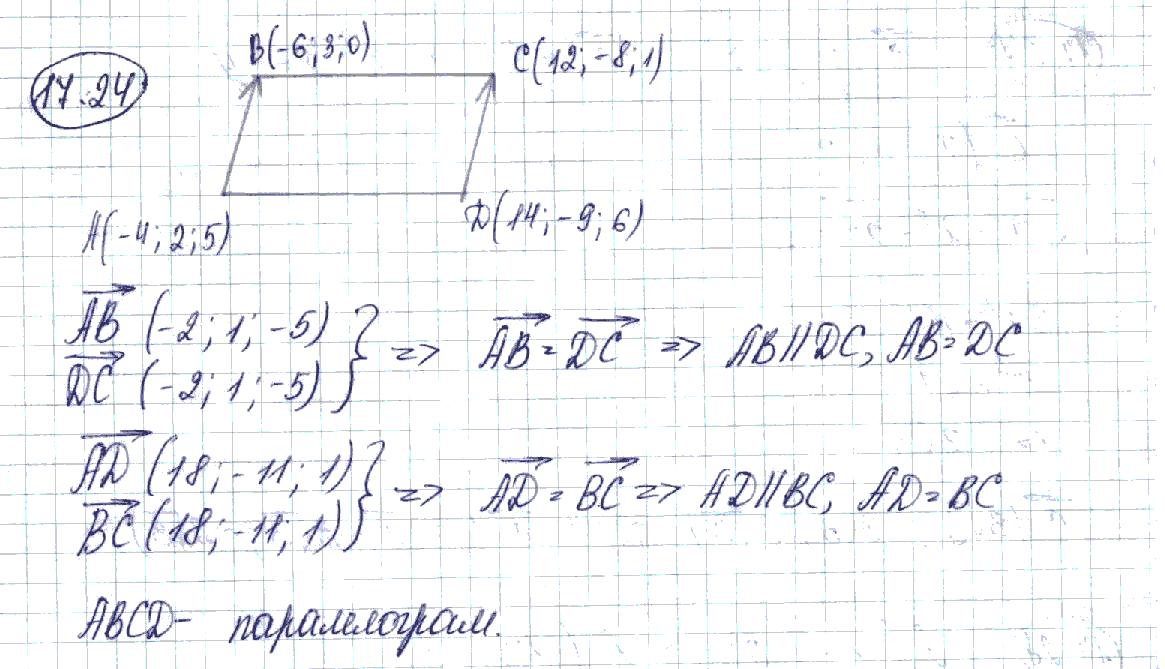 17.24
B(-6;3;0)
C(12;-8;1)
A(-4;2;5)
D(14;-9;6)
AB (-2;1;-5) } => AB = DC => AB||DC, AB=DC
DC (-2;1;-5)
AD (18;-11;1) } => AD = BC => AD||BC, AD=BC
BC (18;-11;1)
ABCD- паралелограм.